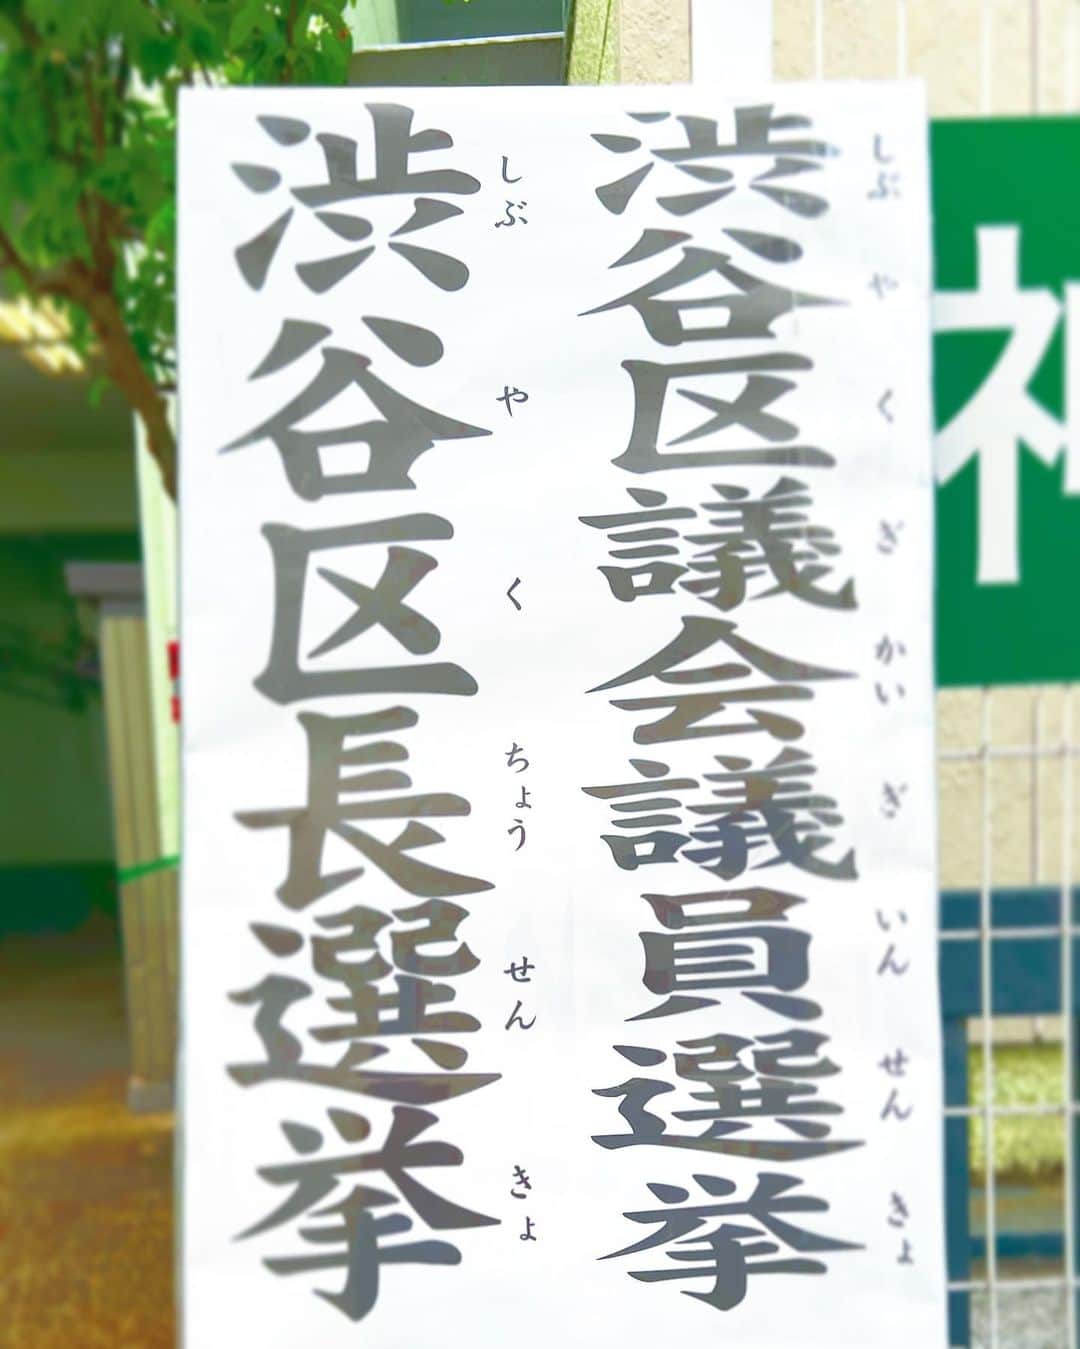 渋谷区議会議員選挙
しぶやくぎかいぎいんせんきょ
渋谷区長選挙
しぶやくちょうせんきょ